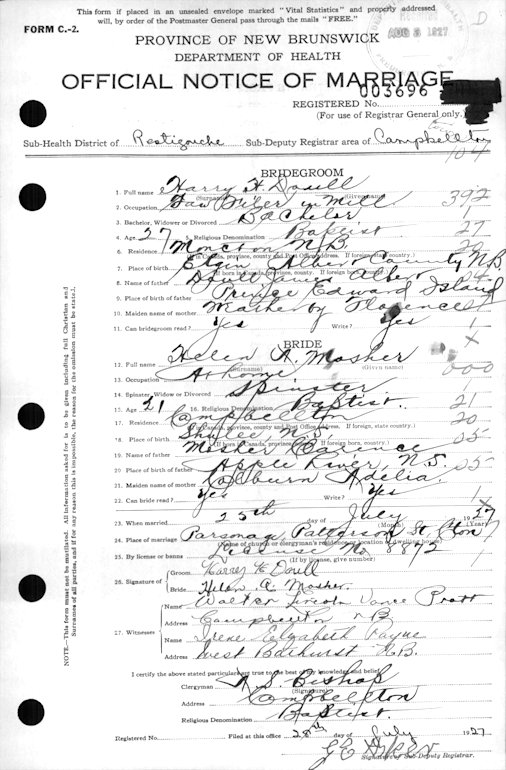 This form if placed in an unsealed envelope marked "Vital Statistics" and properly addressed
will, by order of the Postmaster General pass through the mails "FREE."
FORM C.-2.
AUG 3 1927
D
PROVINCE OF NEW BRUNSWICK
DEPARTMENT OF HEALTH
OFFICIAL NOTICE OF MARRIAGE
003696
REGISTERED No.
(For use of Registrar General only.)
Sub-Health District of Restigouche Sub-Deputy Registrar area of Campbellton
BRIDEGROOM
1. Full name Harry H. Dowll
(Surname) (Given name)
2. Occupation in Mill 392
3. Bachelor, Widower or Divorced Bachelor 1
4. Age 27 5. Religious Denomination Baptist 27
6. Residence Moncton N.B. 20
(If in Canada, province, county and Post Office address. If foreign state, country)
7. Place of birth Elgin Albert County N.B.
(If born in Canada, province, county. If foreign born, country)
8. Name of father James
9. Place of father Prince Edward Island
10. Maiden name of mother Florence
11. Can bridegroom read? Yes Write? Yes 1
BRIDE
12. Full name Helen A. Mosher
(Surname) (Given name)
13. Occupation At home 000
14. Spinster Widow or Divorced Spinster 1
15. Age 21 16. Religious Denomination Baptist 21
17. Residence Campbellton 20
(If in Canada, province, county and Post Office Address, If foreign country, state country)
18. Place of birth Shulee N.S. 05
(If born in Canada, province, county. If foreign born, country)
19. Name of father Mosher Clarence
20. Place of birth of father Apple River, N.S. 05
21. Maiden name of mother Colburn Adelia
22. Can bride read? Yes Write? Yes 1
23. When married 25th day of July 1927
(Month) (Year)
24. Place of marriage Parsonage Patterson St C'lton
(Name of church or clergyman's residence or location of dwelling house)
25. By license or banns License No 8872
(If by license, give number)
26. Signature of Groom Harry H Dowll
Bride Helen A. Mosher
27. Witnesses
Name Walter Lincoln Vance Pratt
Address Campbellton NB
Name Irene Elizabeth Payne
Address West Bathurst N.B.
I certify the above stated particulars are true to the best of my knowledge and belief
Clergyman A. S. Bishop
(Signature)
Address Campbellton
Religious Denomination Baptist
Registered No. Filed at this office 28th day of July 1927
Signature of Sub-Deputy Registrar.
NOTE—This form must not be mutilated. All information asked for is to be given including full Christian and
Surnames of all parties, and if for any reason this is impossible, the reason for the omission must be stated.